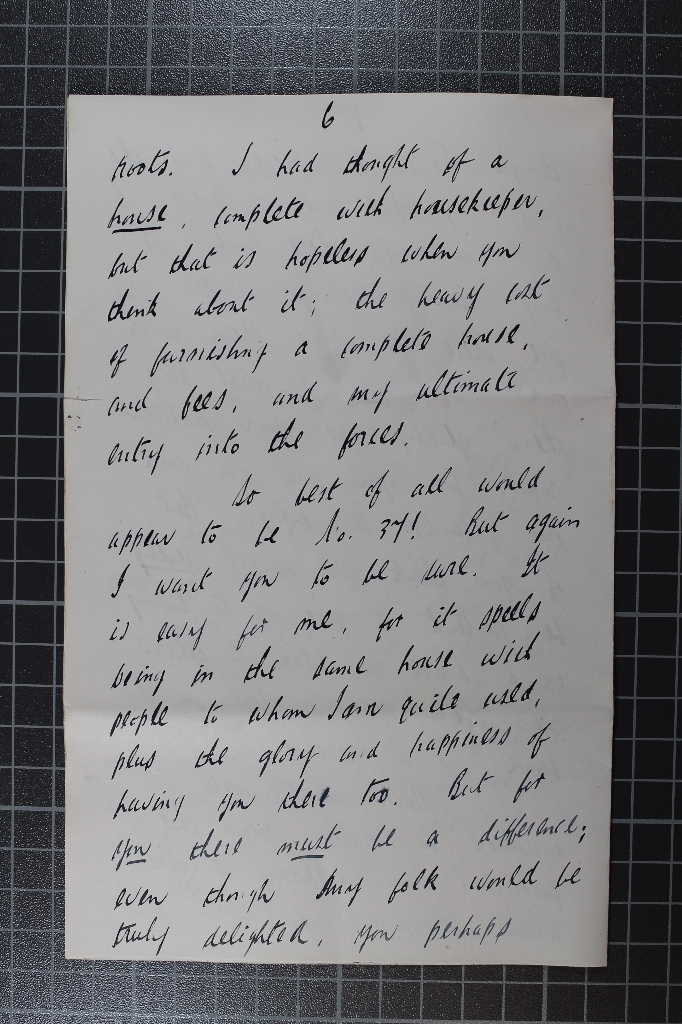 6
roots. I had thought of a
house, complete with housekeeper,
but that is hopeless when you
think about it; the heavy cost
of furnishing a complete house,
and fees, and my ultimate
entry into the forces.
So best of all would
appear to be No. 37! But again
I want you to be sure. It
is easy for me, for it spells
being in the same house with
people to whom I am quite used,
plus the glory and happiness of
having you there too. But for
you there must be a difference;
even though my folk would be
truly delighted, you perhaps